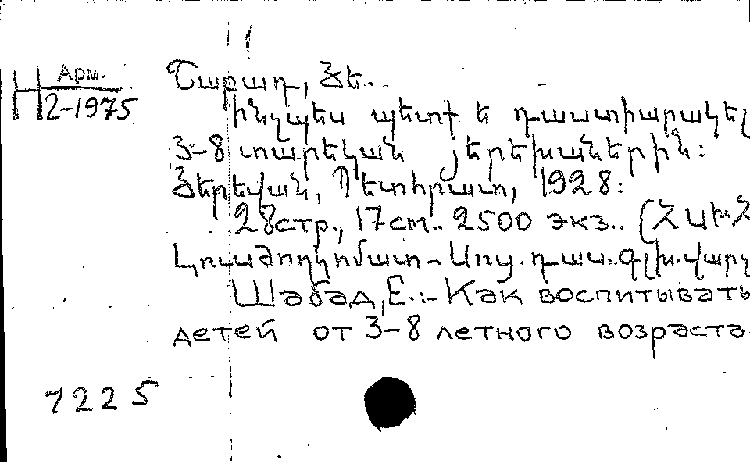 Арм.
Н 2-1975
Շաբադ, Յե..
Ինչպես պետք ե դաստիարակել
3-8 տարեկան յերեխաներին:
Յերեվան, Պետհրատ, 1928:
28стр., 17см.. 2500 экз.. (ՀՍԽՀ
Լուսժողկոմատ- Սոց. դաս. գլխ. վարչ
Шабад, Е.:- Как воспитывать
детей от 3-8 летного возраста
7225